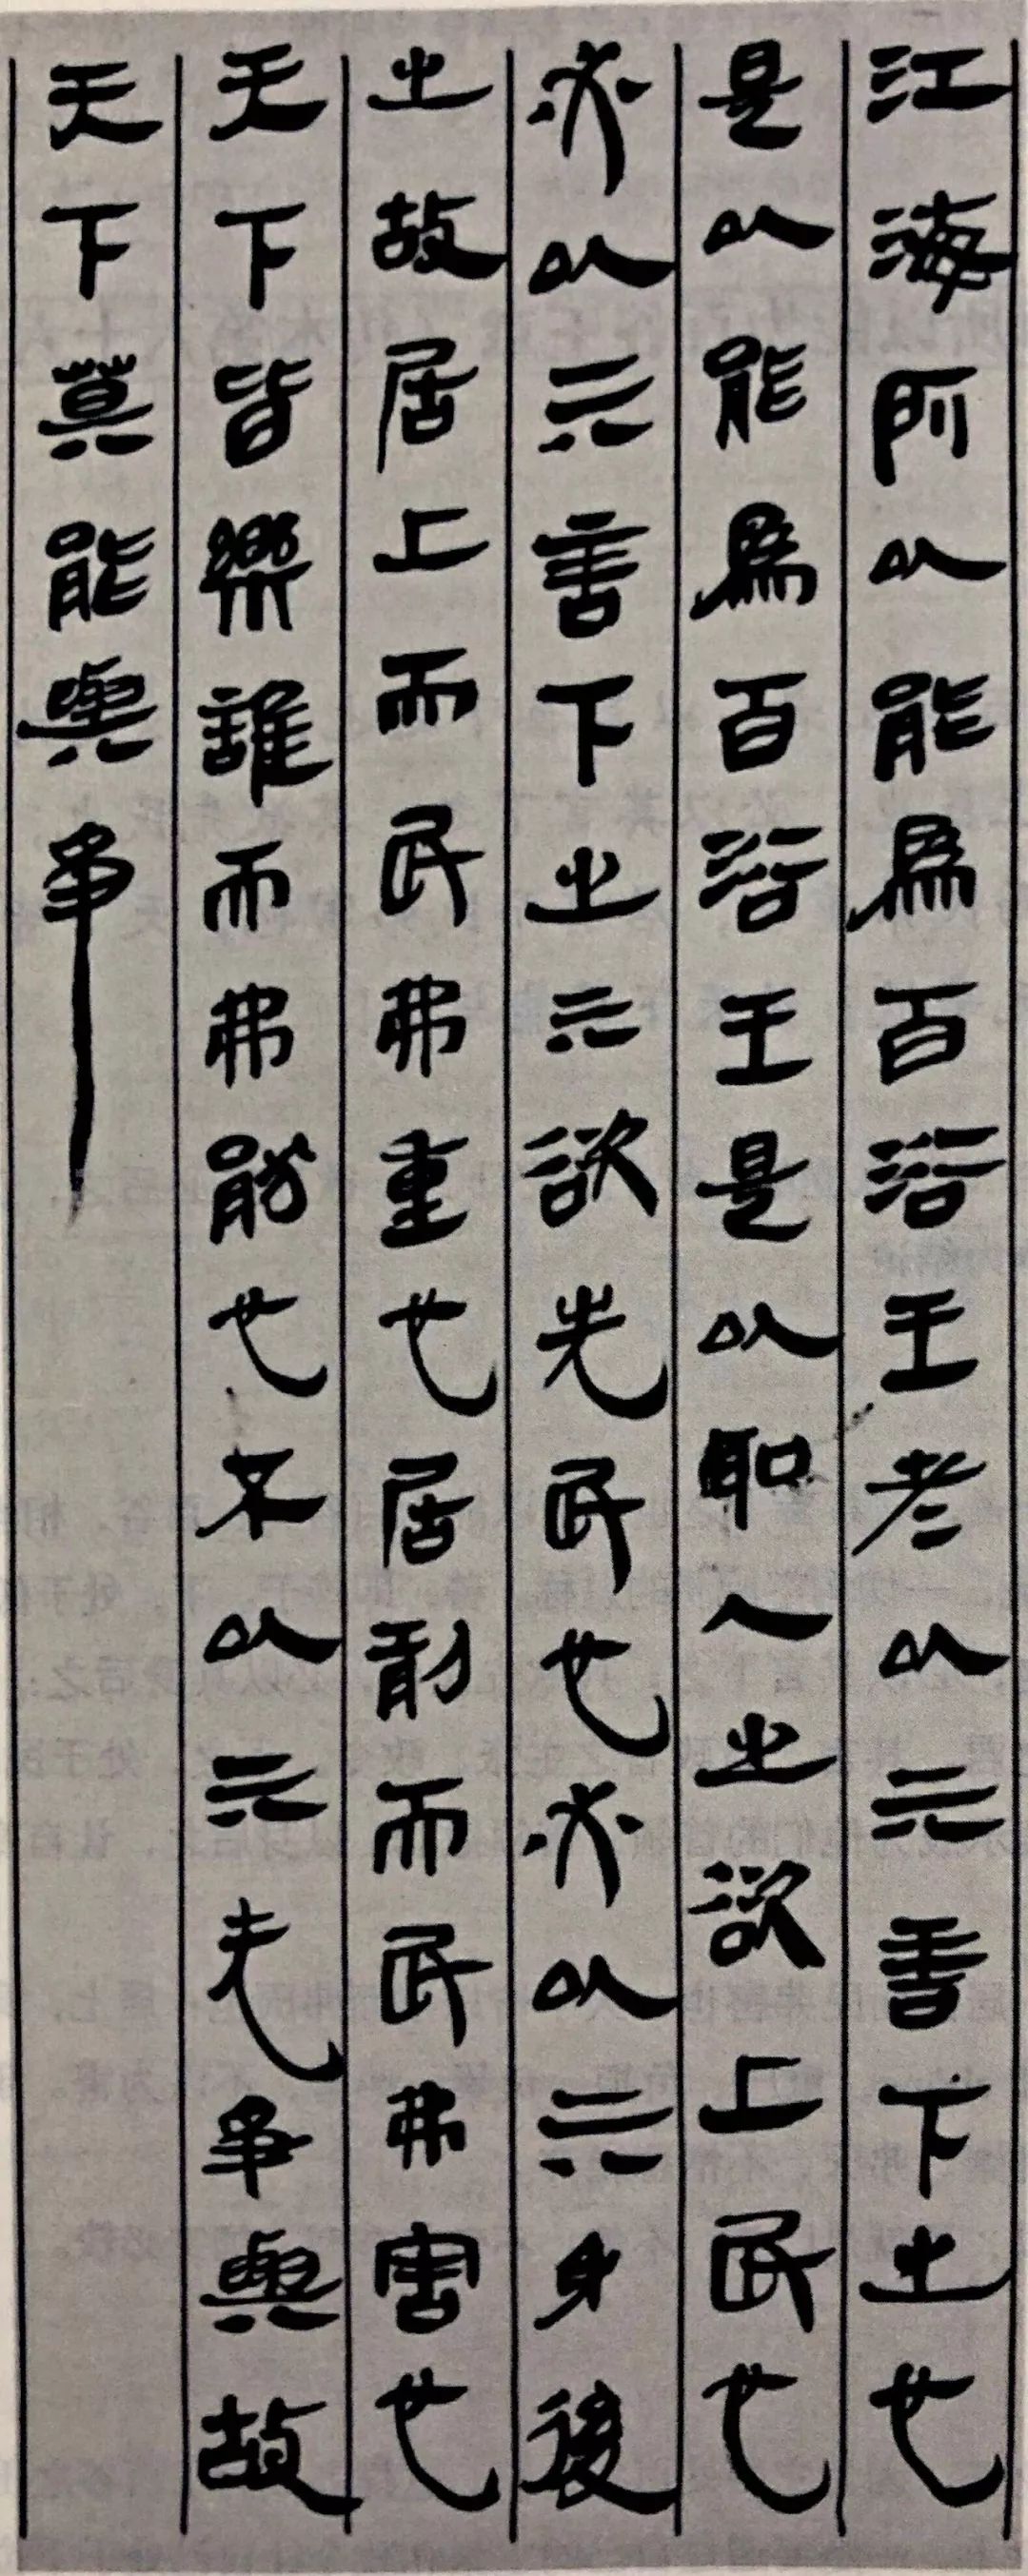 江海所以能為百浴王者以亓善下之也
是以能為百浴王是以聖人之欲上民也
必以亓言下之亓欲先民也必以亓身後
之故居上而民弗重也居前而民弗害也
天下皆樂誰而弗猒也不以亓无爭與故
天下莫能與爭